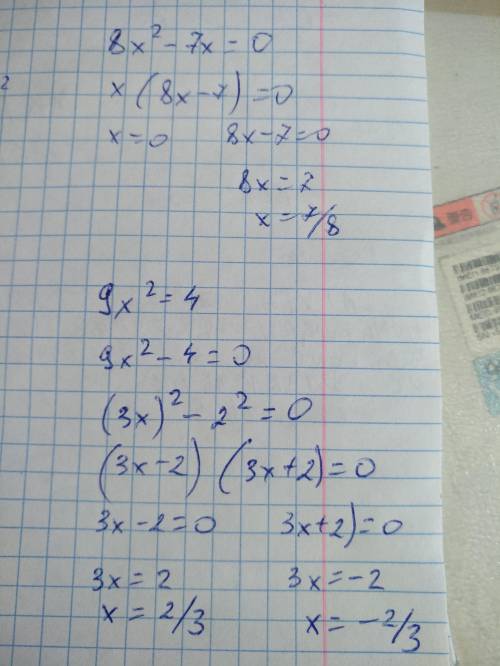 8x² - 7x = 0
x (8x - 7) = 0
x = 0 8x - 7 = 0
8x = 7
x = 7/8
9x² = 4
9x² - 4 = 0
(3x)² - 2² = 0
(3x - 2) (3x + 2) = 0
3x - 2 = 0 3x + 2) = 0
3x = 2 3x = -2
x = 2/3 x = -2/3